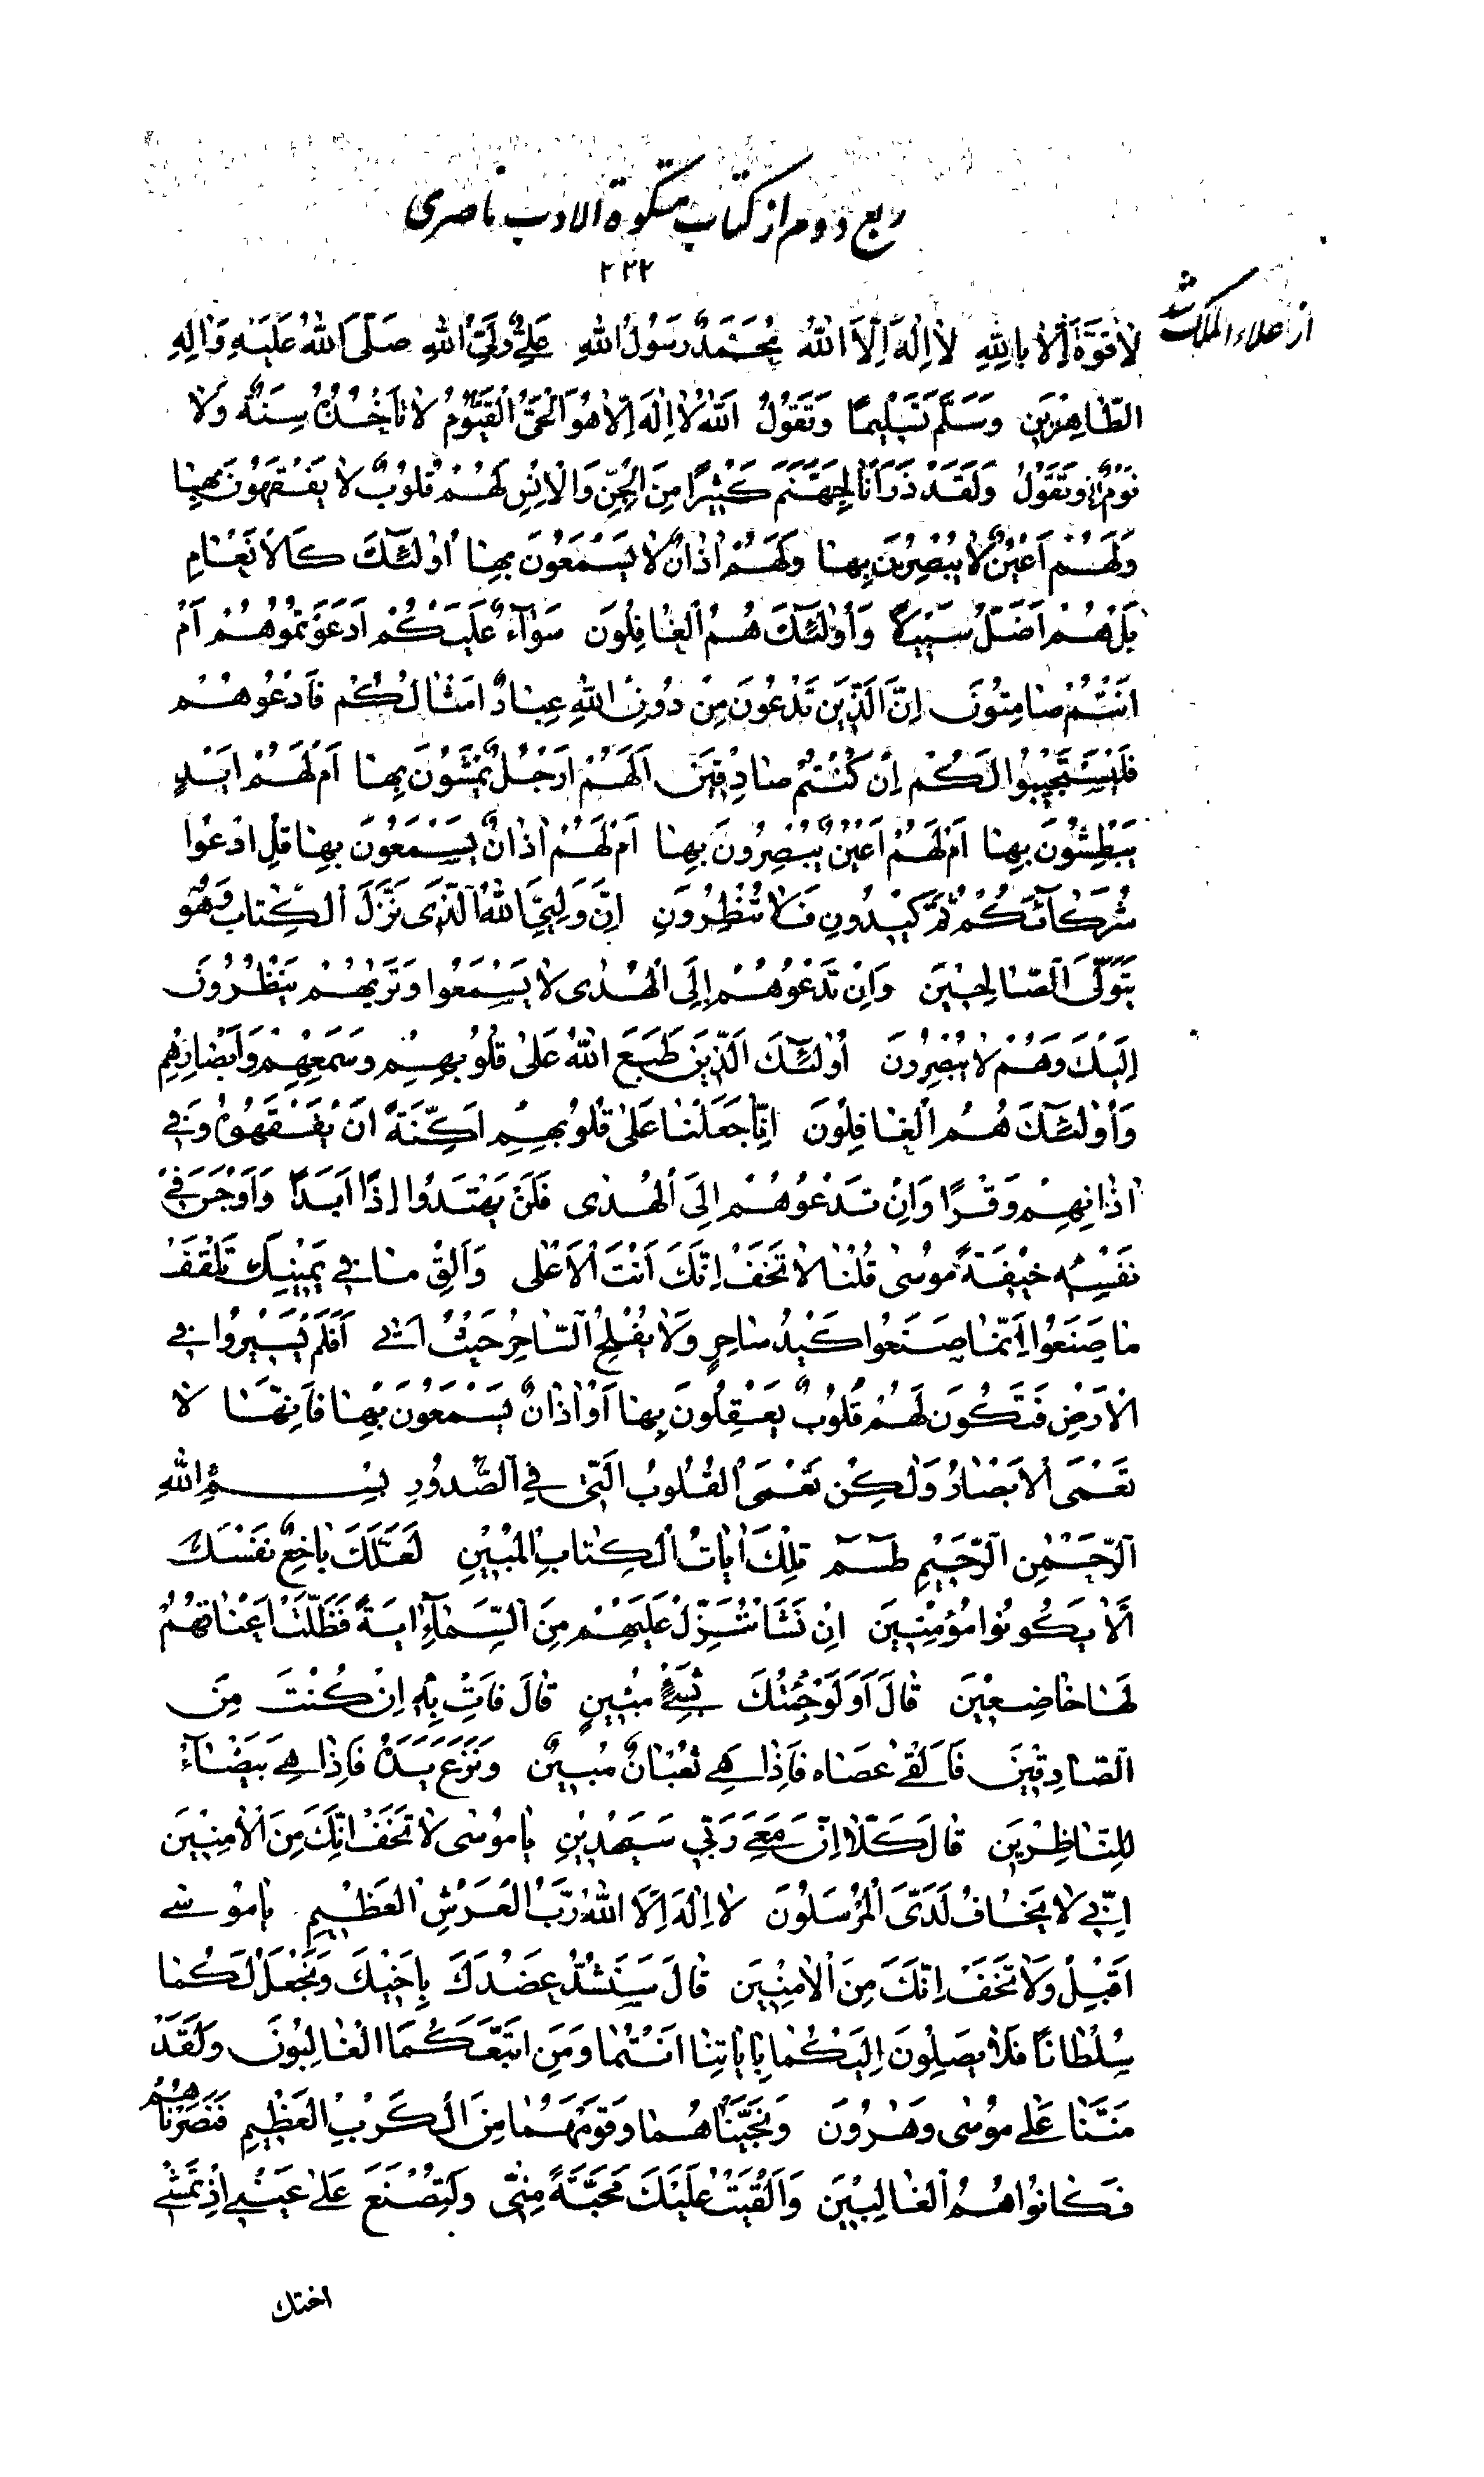 ربع دوم از کتاب مشکوة الادب ناصری
۲۲۲
از علاء الملک شد
لَا قُوَّةَ اِلَّا بِاللّٰهِ لَا اِلٰهَ اِلَّا اللّٰهُ مُحَمَّدٌ رَسُولُ اللّٰهِ عَلِیٌّ وَلِیُّ اللّٰهِ صَلَّی اللّٰهُ عَلَیْهِ وَاٰلِهِ
الطّٰاهِرٖینَ وَسَلَّمَ تَسْلٖیمًا وَتَقُولُ اَللّٰهُ لَا اِلٰهَ اِلَّا هُوَ الْحَیُّ الْقَیُّومُ لَا تَأْخُذُهُ سِنَةٌ وَلَا
نَوْمٌ وَتَقُولُ وَلَقَدْ ذَرَأْنٰا لِجَهَنَّمَ کَثٖیرًا مِنَ الْجِنِّ وَالْاِنْسِ لَهُمْ قُلُوبٌ لَا یَفْقَهُونَ بِهٰا
وَلَهُمْ اَعْیُنٌ لَا یُبْصِرُونَ بِهٰا وَلَهُمْ اٰذٰانٌ لَا یَسْمَعُونَ بِهٰا اُولٰئِکَ کَالْاَنْعٰامِ
بَلْ هُمْ اَضَلُّ سَبٖیلًا وَاُولٰئِکَ هُمُ الْغٰافِلُونَ سَوٰاءٌ عَلَیْکُمْ اَدَعَوْتُمُوهُمْ اَمْ
اَنْتُمْ صٰامِتُونَ اِنَّ الَّذٖینَ تَدْعُونَ مِنْ دُونِ اللّٰهِ عِبٰادٌ اَمْثٰالُکُمْ فَادْعُوهُمْ
فَلْیَسْتَجٖیبُوا لَکُمْ اِنْ کُنْتُمْ صٰادِقٖینَ اَلَهُمْ اَرْجُلٌ یَمْشُونَ بِهٰا اَمْ لَهُمْ اَیْدٍ
یَبْطِشُونَ بِهٰا اَمْ لَهُمْ اَعْیُنٌ یُبْصِرُونَ بِهٰا اَمْ لَهُمْ اٰذٰانٌ یَسْمَعُونَ بِهٰا قُلِ ادْعُوا
شُرَکٰاءَکُمْ ثُمَّ کٖیدُونِ فَلَا تُنْظِرُونِ اِنَّ وَلِیِّیَ اللّٰهُ الَّذٖی نَزَّلَ الْکِتٰابَ وَهُوَ
یَتَوَلَّی الصّٰالِحٖینَ وَاِنْ تَدْعُوهُمْ اِلَی الْهُدٰی لَا یَسْمَعُوا وَتَرٰیهُمْ یَنْظُرُونَ
اِلَیْکَ وَهُمْ لَا یُبْصِرُونَ اُولٰئِکَ الَّذٖینَ طَبَعَ اللّٰهُ عَلٰی قُلُوبِهِمْ وَسَمْعِهِمْ وَاَبْصٰارِهِمْ
وَاُولٰئِکَ هُمُ الْغٰافِلُونَ اِنّٰا جَعَلْنٰا عَلٰی قُلُوبِهِمْ اَکِنَّةً اَنْ یَفْقَهُوهُ وَفٖی
اٰذٰانِهِمْ وَقْرًا وَاِنْ تَدْعُوهُمْ اِلَی الْهُدٰی فَلَنْ یَهْتَدُوا اِذًا اَبَدًا وَاَوْجَسَ فٖی
نَفْسِهٖ خٖیفَةً مُوسٰی قُلْنٰا لَا تَخَفْ اِنَّکَ اَنْتَ الْاَعْلٰی وَاَلْقِ مٰا فٖی یَمٖینِکَ تَلْقَفْ
مٰا صَنَعُوا اِنَّمٰا صَنَعُوا کَیْدُ سٰاحِرٍ وَلَا یُفْلِحُ السّٰاحِرُ حَیْثُ اَتٰی اَفَلَمْ یَسٖیرُوا فٖی
الْاَرْضِ فَتَکُونَ لَهُمْ قُلُوبٌ یَعْقِلُونَ بِهٰا اَوْ اٰذٰانٌ یَسْمَعُونَ بِهٰا فَاِنَّهٰا لَا
تَعْمَی الْاَبْصٰارُ وَلٰکِنْ تَعْمَی الْقُلُوبُ الَّتٖی فِی الصُّدُورِ بِسْمِ اللّٰهِ
الرَّحْمٰنِ الرَّحٖیمِ طٰسٓمٓ تِلْکَ اٰیٰاتُ الْکِتٰابِ الْمُبٖینِ لَعَلَّکَ بٰاخِعٌ نَفْسَکَ
اَلَّا یَکُونُوا مُؤْمِنٖینَ اِنْ نَشَأْ نُنَزِّلْ عَلَیْهِمْ مِنَ السَّمٰاءِ اٰیَةً فَظَلَّتْ اَعْنٰاقُهُمْ
لَهٰا خٰاضِعٖینَ قٰالَ اَوَلَوْ جِئْتُکَ بِشَیْءٍ مُبٖینٍ قٰالَ فَأْتِ بِهٖ اِنْ کُنْتَ مِنَ
الصّٰادِقٖینَ فَاَلْقٰی عَصٰاهُ فَاِذٰا هِیَ ثُعْبٰانٌ مُبٖینٌ وَنَزَعَ یَدَهُ فَاِذٰا هِیَ بَیْضٰاءُ
لِلنّٰاظِرٖینَ قٰالَ کَلَّا اِنَّ مَعِیَ رَبّٖی سَیَهْدٖینِ یٰا مُوسٰی لَا تَخَفْ اِنَّکَ مِنَ الْاٰمِنٖینَ
اِنّٖی لَا یَخٰافُ لَدَیَّ الْمُرْسَلُونَ لَا اِلٰهَ اِلَّا اللّٰهُ رَبُّ الْعَرْشِ الْعَظٖیمِ یٰا مُوسٰی
اَقْبِلْ وَلَا تَخَفْ اِنَّکَ مِنَ الْاٰمِنٖینَ قٰالَ سَنَشُدُّ عَضُدَکَ بِاَخٖیکَ وَنَجْعَلُ لَکُمٰا
سُلْطٰانًا فَلَا یَصِلُونَ اِلَیْکُمٰا بِاٰیٰاتِنٰا اَنْتُمٰا وَمَنِ اتَّبَعَکُمَا الْغٰالِبُونَ وَلَقَدْ
مَنَنّٰا عَلٰی مُوسٰی وَهٰرُونَ وَنَجَّیْنٰاهُمٰا وَقَوْمَهُمٰا مِنَ الْکَرْبِ الْعَظٖیمِ فَنَصَرْنٰاهُمْ
فَکٰانُوا هُمُ الْغٰالِبٖینَ وَاَلْقَیْتُ عَلَیْکَ مَحَبَّةً مِنّٖی وَلِتُصْنَعَ عَلٰی عَیْنٖی اِذْ تَمْشٖی
اختک